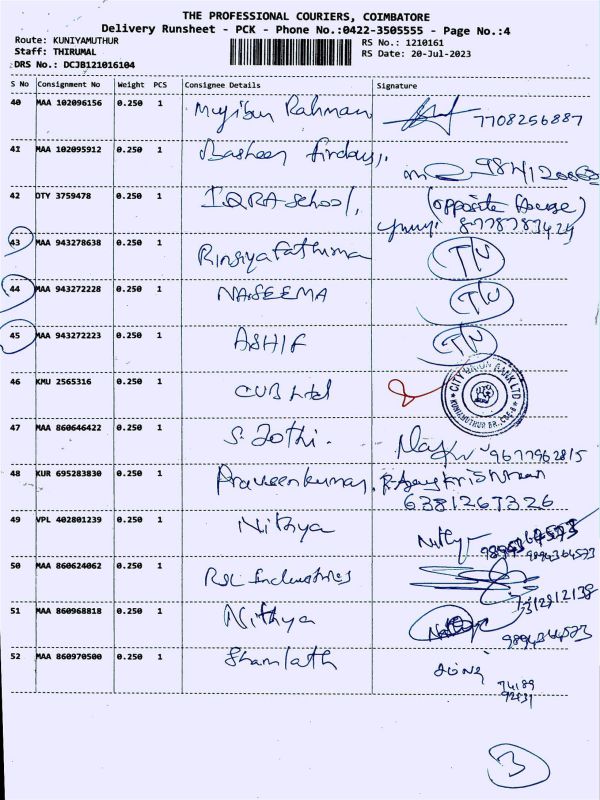 THE PROFESSIONAL COURIERS, COIMBATORE
Delivery Runsheet - PCK - Phone No.:0422-3505555 - Page No.:4
Route: KUNIYAMUTHUR
RS No.: 1210161
Staff: THIRUMAL
RS Date: 20-Jul-2023
DRS No.: DCJB121016104
S No Consignment No Weight PCS Consignee Details Signature
40 MAA 102096156 0.250 1 Mujibur Rahman 7708256887
41 MAA 102095912 0.250 1 Basheer
42 OTY 3759478 0.250 1 IQRA School, (opposite House)
8778783424
43 MAA 943278638 0.250 1 Rinsiya Fathima
44 MAA 943272228 0.250 1 NASEEMA
45 MAA 943272223 0.250 1 ASHIF
46 KMU 2565316 0.250 1 CUB Ltd CITY UNION BANK LTD
KUNIAMUTHUR BR., CBE-8
47 MAA 860646422 0.250 1 S. Jothi. 9677962815
48 KUR 695283830 0.250 1 Praveenkumar, R. Ajaykrishnan
6381267326
49 VPL 402801239 0.250 1 Nithya Nithya
9894364573
50 MAA 860624062 0.250 1 Industries
51 MAA 860968818 0.250 1 Nithya
9894364573
52 MAA 860970500 0.250 1 Shamlath
74189
92131
3